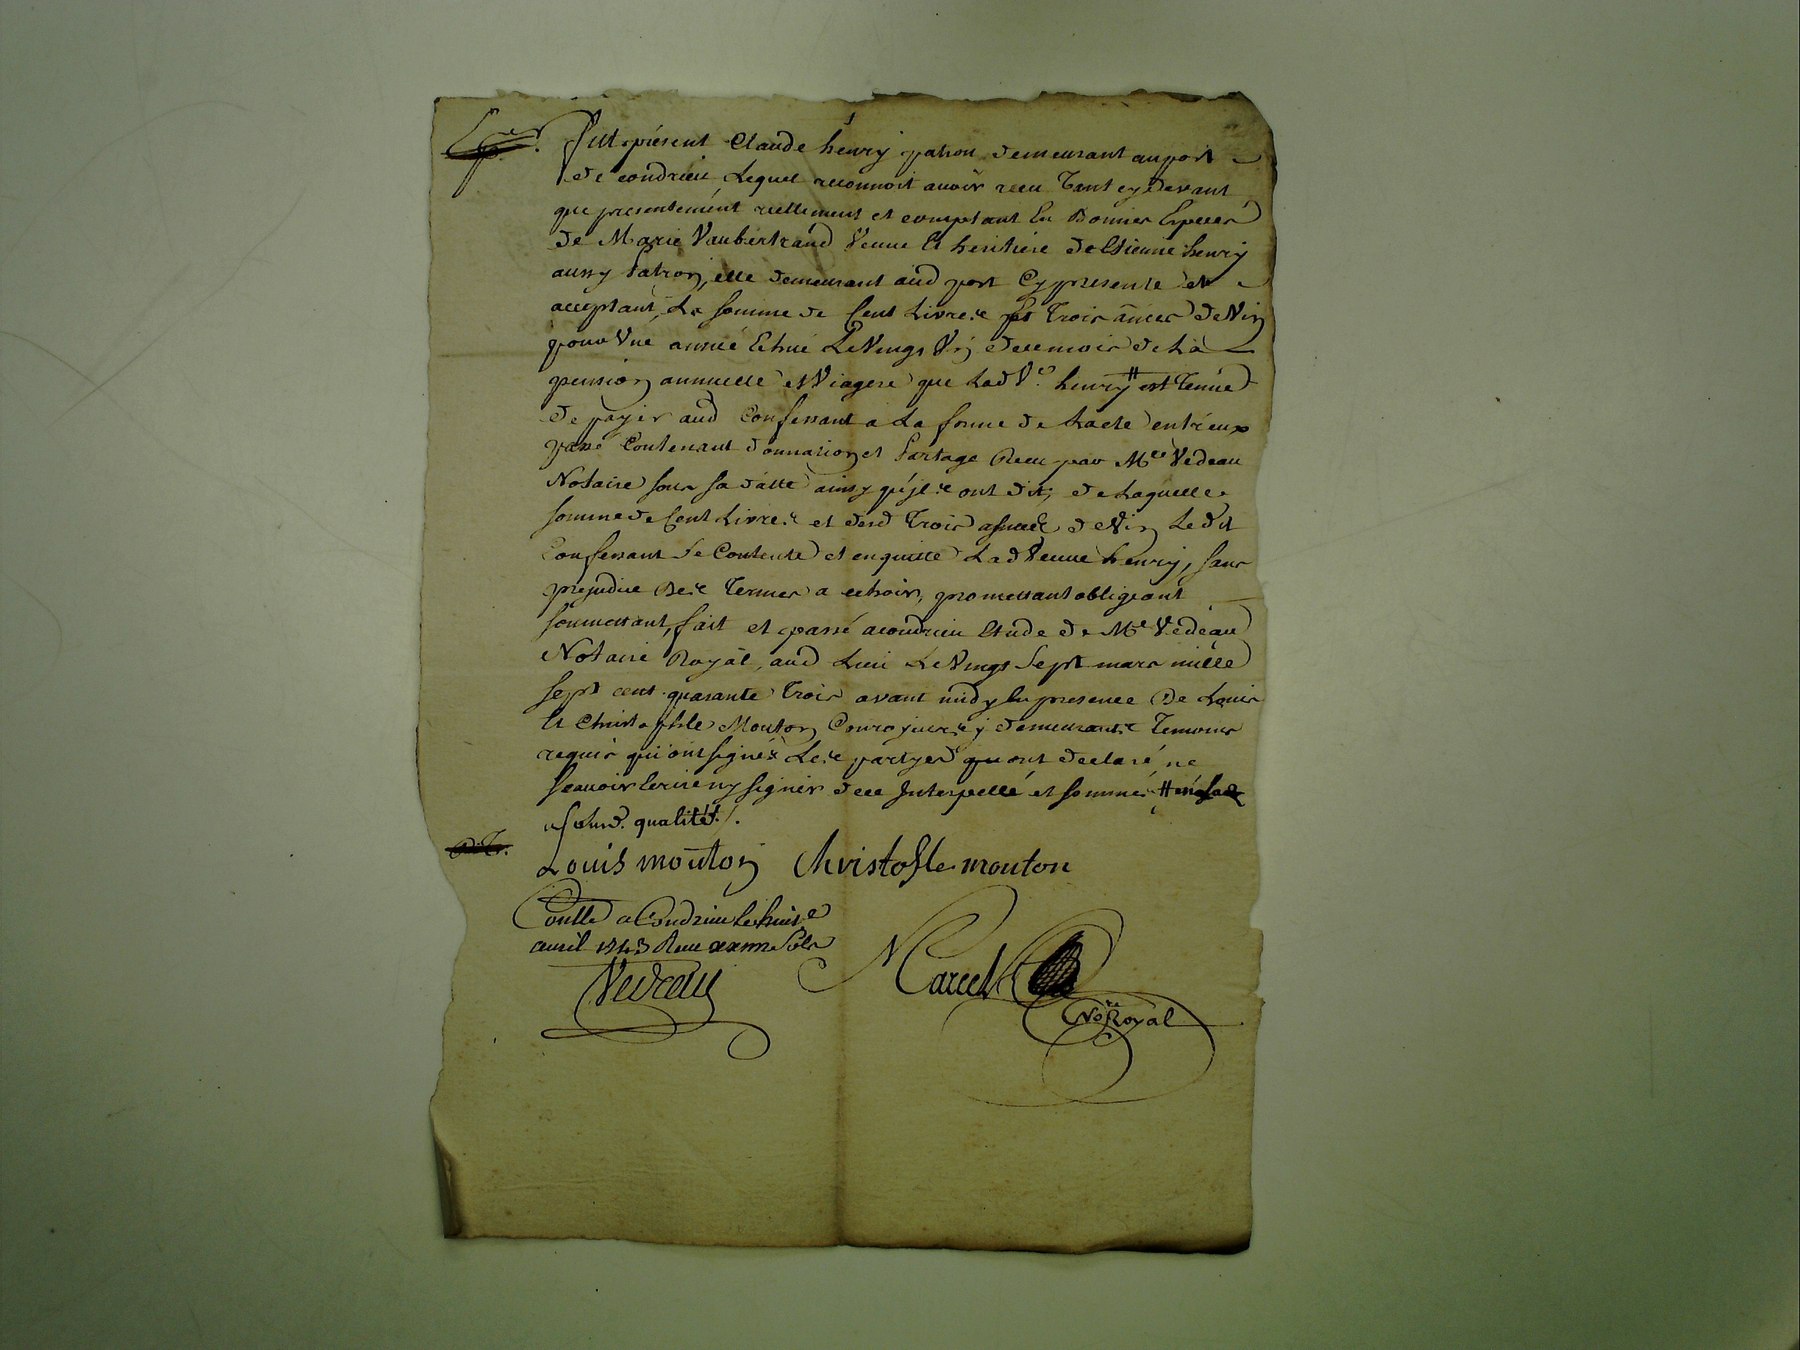 Fut présent Claude henry patron demeurant au port
de condrieu, Lequel reconnoit avoir receu tant cy devant
que presentement reellement et comptant En Bonnes Especes
de Marie Vaubertrand Veuve et heritiére de Etienne henry
aussy Patron, elle demeurant aud port Cy presente et
acceptant, La somme de Cent Livres et trois ânées de Vin
pour Vne année Echue Le Vingt Vn de ce mois de La
pension annuelle et Viagere que Lad Ve. henry # est tenue
de payer aud Confessant a La forme de Lacte entr'eux
passé Contenant donnation et Partage Receu par Me Vedeau
Notaire sous sa datte ainsy qu'jls ont dit, de Laquelle
somme de Cent Livres et desd trois asnées de Vin Ledit
Confessant se Contente et en quitte Lad Veuve henry, sans
prejudice Des termes a echoir, promettant obligeant
soumettant, fait et passé a condrieu Etude de Me Vedeau
Notaire Royal, aud Lieu Le Vingt Sept mars mille
Sept cent quarante trois avant midy En presence De Louis
et Christophle Mouton Couroyeurs y demeurants temoins
requis qui ont signés Les partyes qui ont declaré ne
sçavoir Ecrire ny signer de ce Interpellé et sommé #
qualités ./.
Louis mouton Christofle mouton
Conllé a Condrieu Le huit
avril 1743 Receu Sols
Vedeau
Marcel
Nore Royal